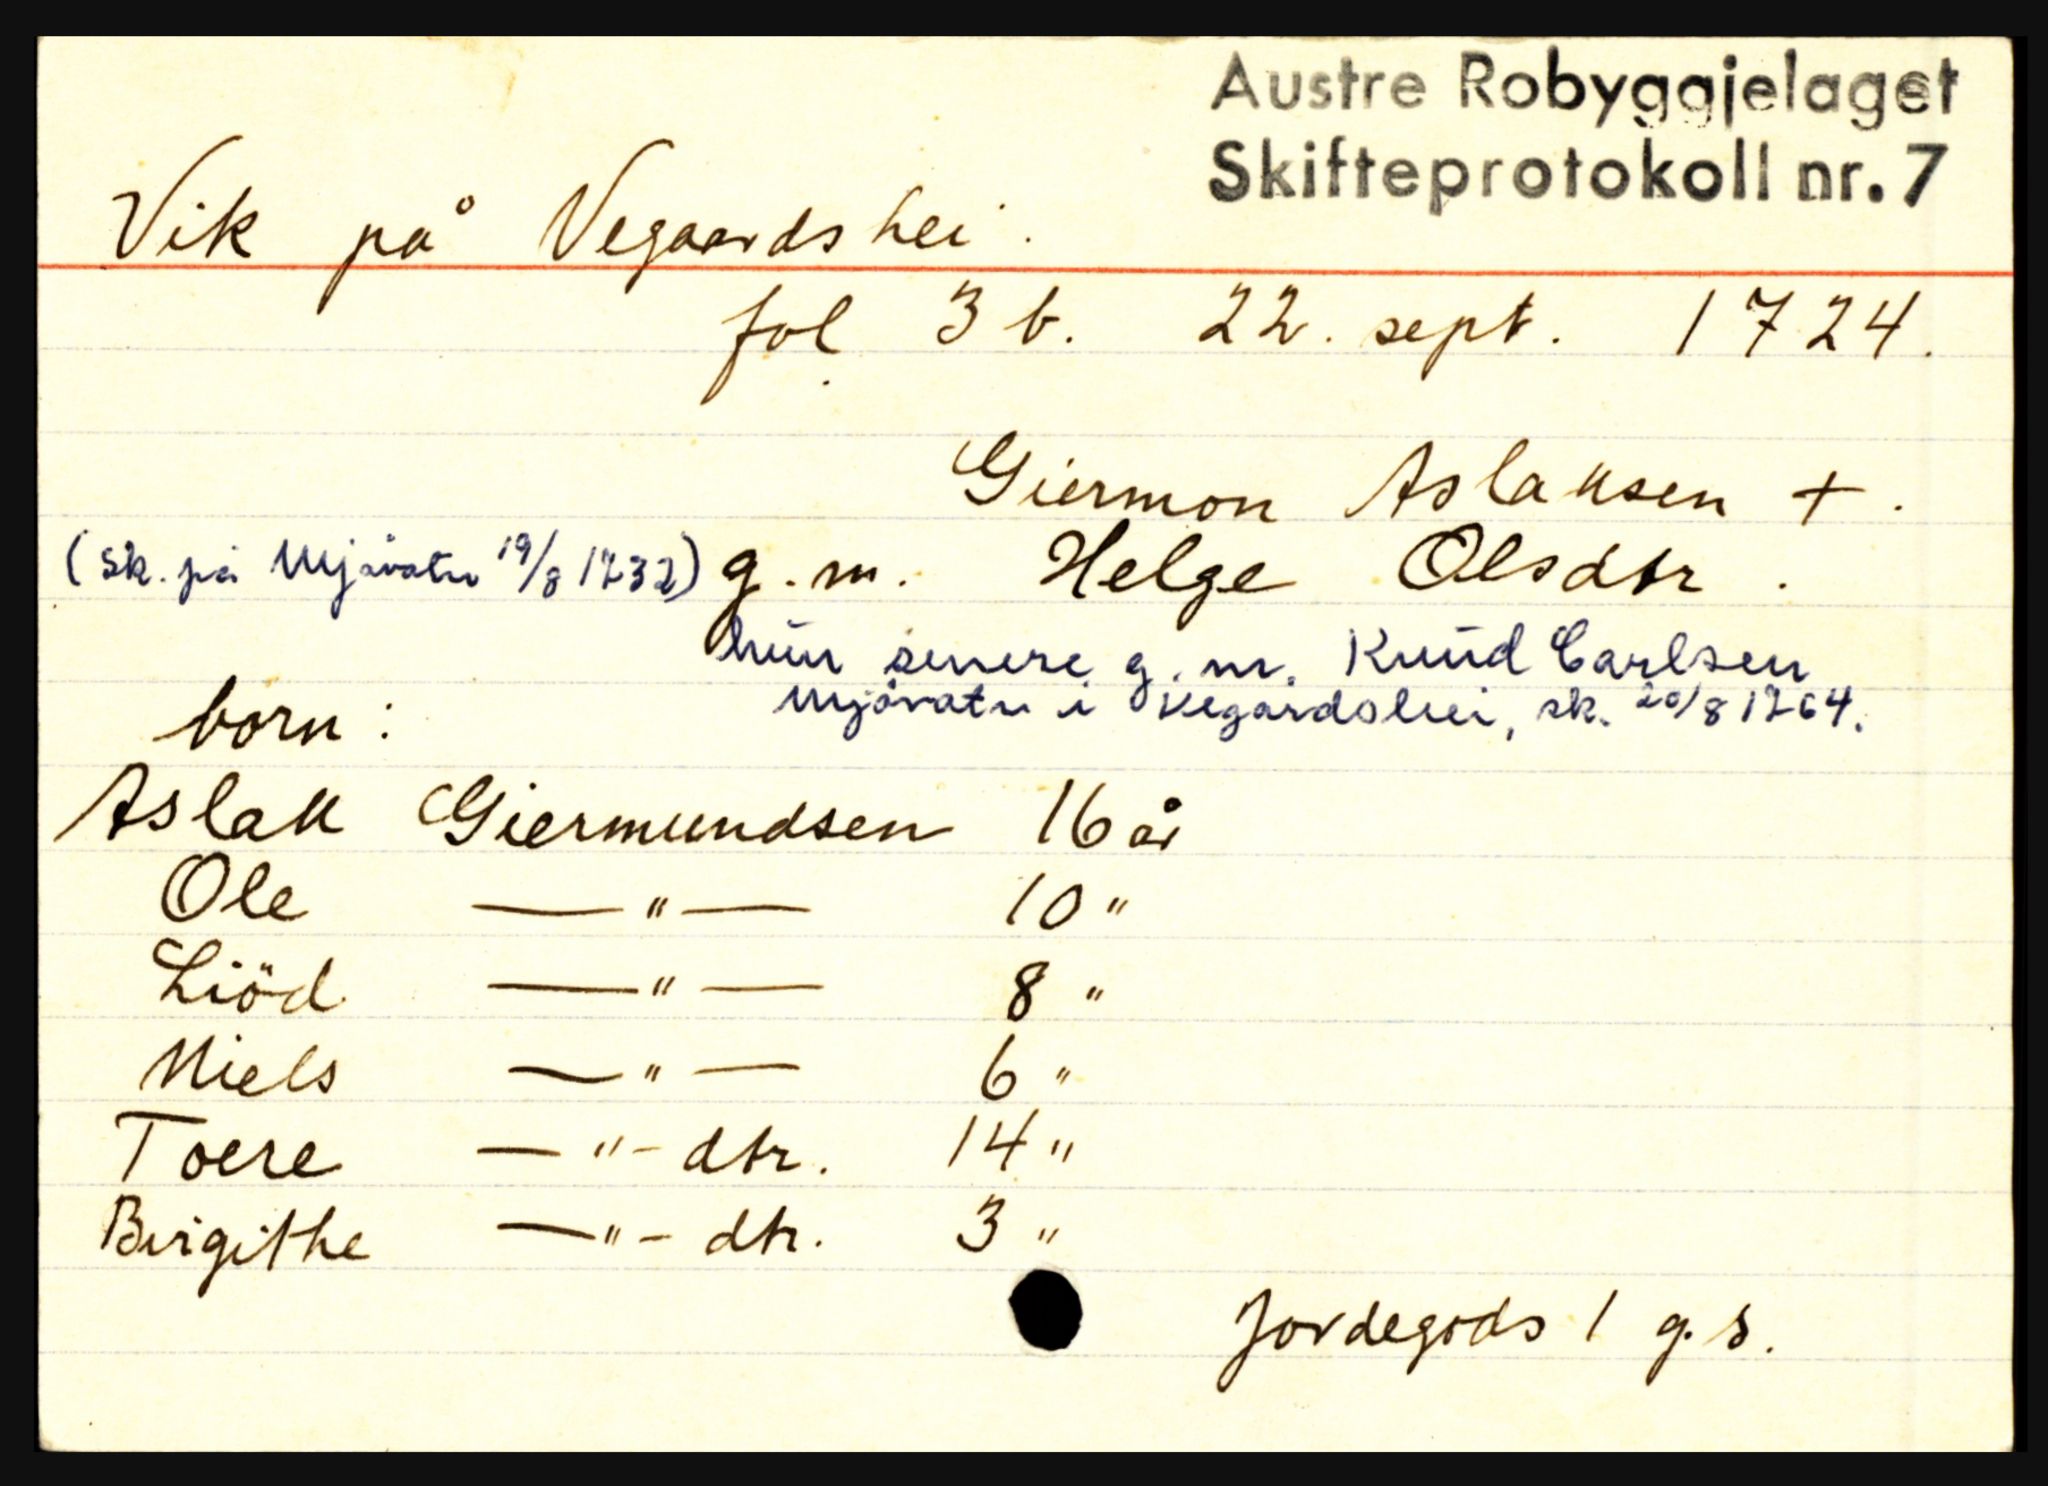 Austre Robyggjelaget
Skifteprotokoll nr. 7
Vik på Vegaardshei.
fol 3 b. 22. sept. 1724.
Giermon Aslaksen +.
(sk. på Mjåvatn 19/8 1732) g. m. Helge Olsdtr.
hun senere g. m. Knud Carlsen
Mjåvatn i Vegårdshei, sk. 20/8 1764.
born:
Aslak Giermundsen 16 år
Ole —"— 10 "
Liöd —"— 8 "
Niels —"— 6 "
Toere —"- dtr. 14 "
Birgithe —"- dtr. 3 "
Jordegods 1 g. s.